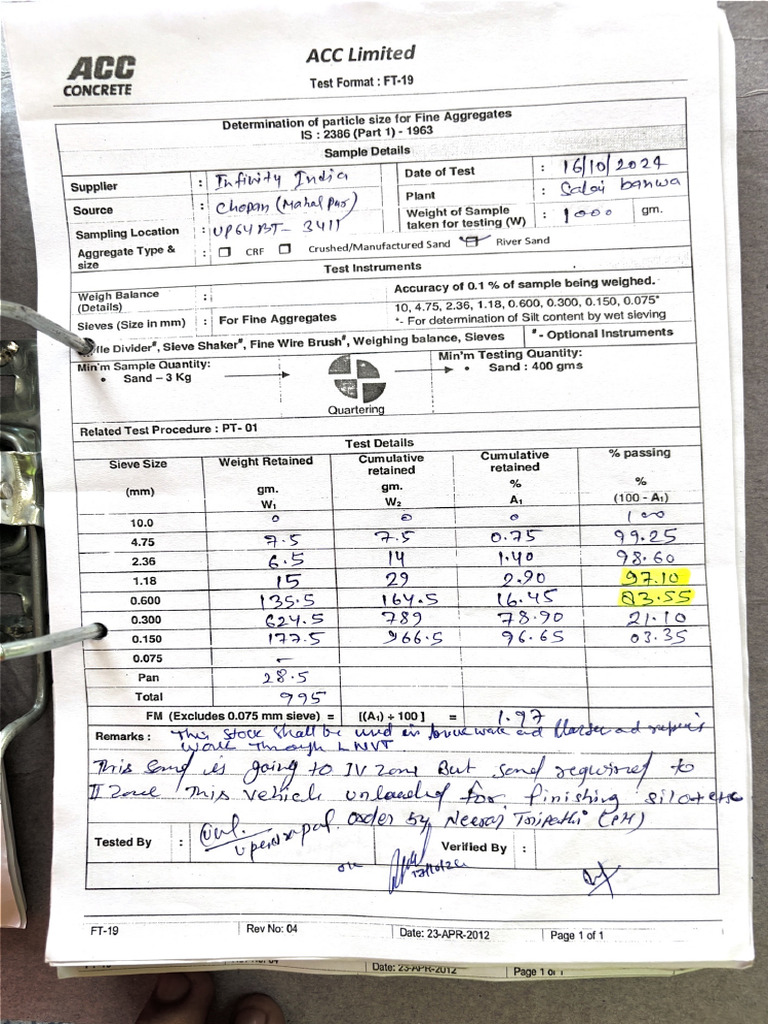 ACC
CONCRETE
ACC Limited
Test Format : FT-19
Determination of particle size for Fine Aggregates
IS : 2386 (Part 1) - 1963
Sample Details
Supplier : Infinity India
Date of Test : 16/10/2024
Source : Chopan (Mahalpur)
Plant : Salai banwa
Sampling Location : UP64BT- 3411
Weight of Sample taken for testing (W) : 1000 gm.
Aggregate Type & size : CRF Crushed/Manufactured Sand River Sand
Test Instruments
Weigh Balance (Details) : Accuracy of 0.1 % of sample being weighed.
Sieves (Size in mm) : For Fine Aggregates
10, 4.75, 2.36, 1.18, 0.600, 0.300, 0.150, 0.075*
*- For determination of Silt content by wet sieving
ffle Divider#, Sieve Shaker#, Fine Wire Brush#, Weighing balance, Sieves
#- Optional Instruments
Min'm Sample Quantity:
• Sand – 3 Kg
Quartering
Min'm Testing Quantity:
• Sand : 400 gms
Related Test Procedure : PT- 01
Test Details
Sieve Size (mm) Weight Retained gm. W1 Cumulative retained gm. W2 Cumulative retained % A1 % passing % (100 - A1)
10.0 0 0 0 100
4.75 7.5 7.5 0.75 99.25
2.36 6.5 14 1.40 98.60
1.18 15 29 2.90 97.10
0.600 135.5 164.5 16.45 83.55
0.300 624.5 789 78.90 21.10
0.150 177.5 966.5 96.65 03.35
0.075 -
Pan 28.5
Total 995
FM (Excludes 0.075 mm sieve) = [(A1) ÷ 100 ] = 1.97
Remarks : This stock shall be used in brick work and and repairs
work Through LNVT
This sand is going to IV zone But sand required to
II Zone This vehicle unloaded for finishing
order by Neeraj Tripathi (PH)
Tested By :
Verified By :
ok
FT-19
Rev No: 04
Date: 23-APR-2012
Page 1 of 1
Date: 23-APR-2012
Page 1 of 1